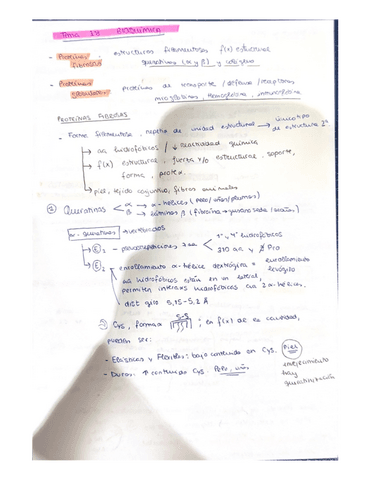 Tema 18 BIOQUÍMICA
- Proteínas fibrosas: estructuras filamentosas f(x) estructural
queratinas (α y β) y colágeno
- Proteínas globulares: proteínas de transporte / defensa / receptores
mioglobina, hemoglobina, inmunoglobina
PROTEÍNAS FIBROSAS
- Forma filamentosa, repetic. de unidad estructural → único tipo de estructura 2ª
↳ aa hidrofóbicos / ↓ reactividad química
↳ f(x) estructural, fuerza y/o estructural, soporte,
forma, protex.
↳ piel, tejido conjuntivo, fibras animales
Queratinas < α → α-hélices (pelo/uñas/plumas)
β → láminas β (fibroína gusano seda / arañas)
α-queratinas → vertebrados
↳ E1 - pseudorepeticiones → aa < 1º y 4º hidrofóbicos
310 aa y Pro
↳ E2 enrollamiento α-hélice dextrógira = enrollamiento levógiro
aa hidrofóbicos están en un lateral,
permiten interacc hidrofóbicas con 2 α-hélices.
dist giro 5,15-5,2 Å
Cys, forma S-S; en f(x) de es cantidad,
pueden ser:
- Elásticas y Flexibles: bajo contenido en Cys. Piel
- Duras: ↑ contenido Cys. Pelo, uñas
hay